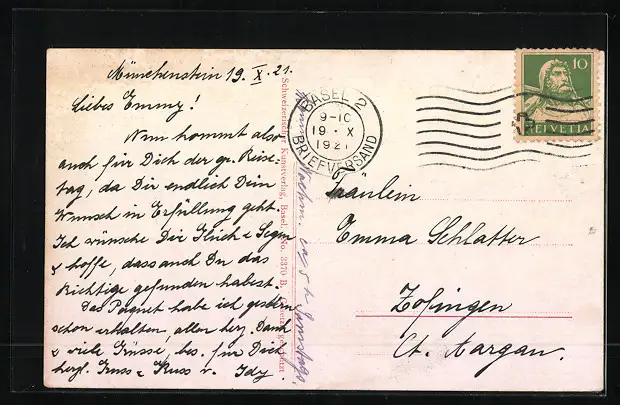 Münchenstein 19. X. 21.
Liebes Emmy!
Nun kommt also
auch für Dich der gr. Reise=
tag, da Dir endlich Dein
Wunsch in Erfüllung geht.
Ich wünsche Dir Glück & Segen
& hoffe, dass auch Du das
Richtige gefunden habest.
Das Paquet habe ich gestern
schon erhalten, aller herz. Dank
& viele Grüsse, bes. für Dich
herzl. Gruss & Kuss v. Idy
Schweizerischer Kunstverlag, Basel. No. 3370 B.
Nachm. ca 5 h Samstags.
BASEL 2
9-10
19·X
1921
BRIEFVERSAND
10
HELVETIA
Fräulein
Emma Schlatter
Zofingen
Ct. Aargau.